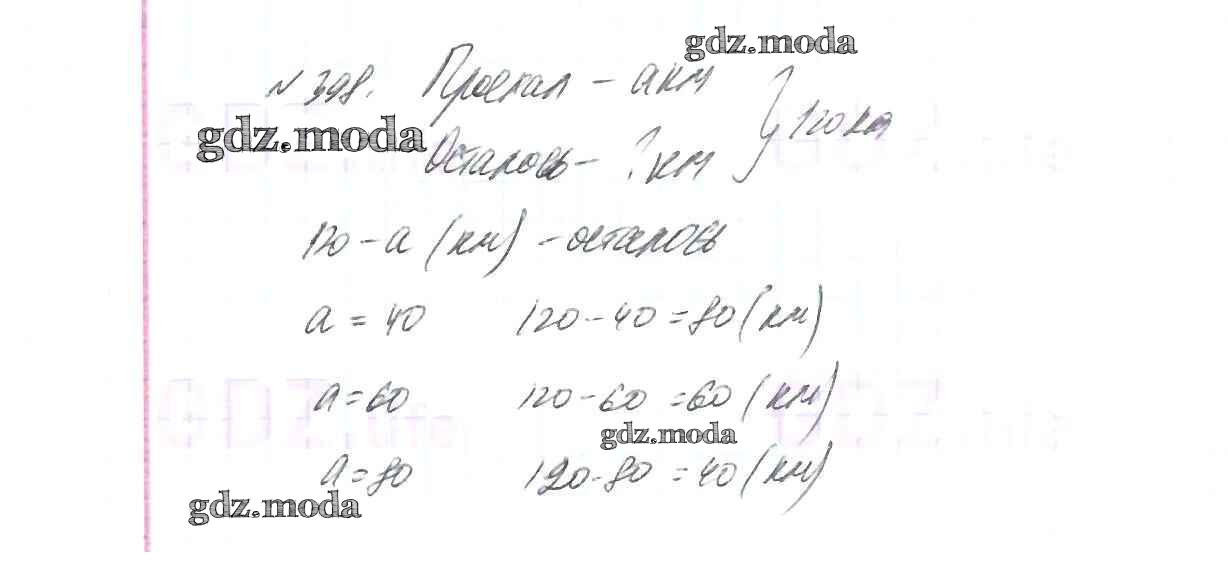 gdz.moda
№ 398. Проехал – а км } 120 км
gdz.moda
Осталось – ? км
120 – а (км) – осталось
а = 40 120 – 40 = 80 (км)
а = 60 120 – 60 = 60 (км)
gdz.moda
а = 80 120 – 80 = 40 (км)
gdz.moda